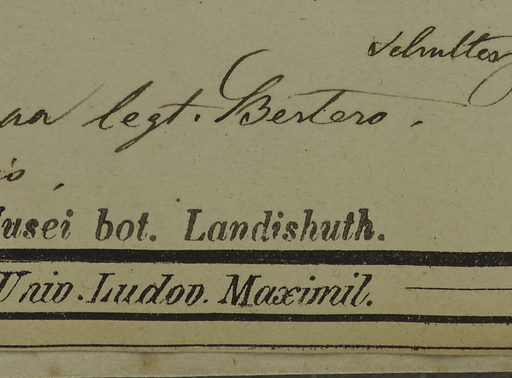 Schultes
legt. Bertero.
Musei bot. Landishuth.
Univ. Ludov. Maximil.